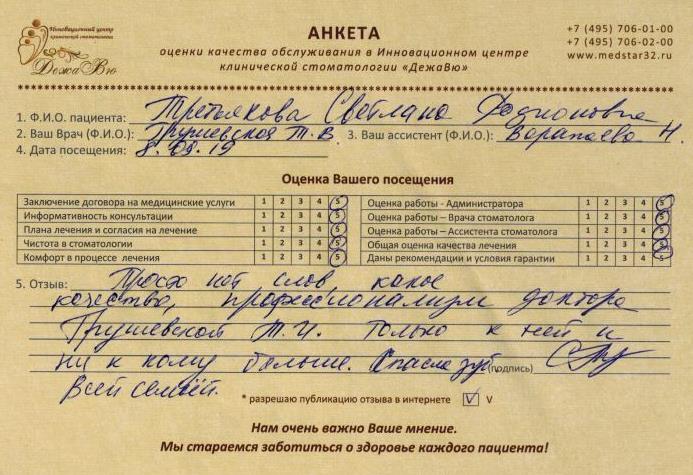 Инновационный центр
клинической стоматологии
ДежаВю
АНКЕТА
оценки качества обслуживания в Инновационном центре
клинической стоматологии «ДежаВю»
+7 (495) 706-01-00
+7 (495) 706-02-00
www.medstar32.ru
1. Ф.И.О. пациента: Третьякова Светлана Родионовна
2. Ваш Врач (Ф.И.О.): Грушевская Т.В. 3. Ваш ассистент (Ф.И.О.): Варапаева Н.
4. Дата посещения: 8.09.19
Оценка Вашего посещения
Заключение договора на медицинские услуги 1 2 3 4 5 Оценка работы - Администратора 1 2 3 4 5
Информативность консультации 1 2 3 4 5 Оценка работы – Врача стоматолога 1 2 3 4 5
Плана лечения и согласия на лечение 1 2 3 4 5 Оценка работы – Ассистента стоматолога 1 2 3 4 5
Чистота в стоматологии 1 2 3 4 5 Общая оценка качества лечения 1 2 3 4 5
Комфорт в процессе лечения 1 2 3 4 5 Даны рекомендации и условия гарантии 1 2 3 4 5
5. Отзыв: Просто нет слов, какое
качество, профессионализм доктора
Грушевской Т.И. Только к ней и
ни к кому больше. Спасла зуб (подпись)
всей семьёй.
* разрешаю публикацию отзыва в интернете V
Нам очень важно Ваше мнение.
Мы стараемся заботиться о здоровье каждого пациента!